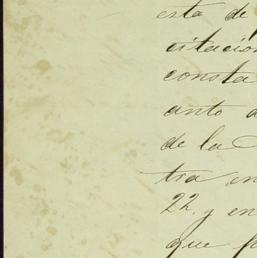 esta de
citación
consta
anto a
de la
tra en
22, y en
que p